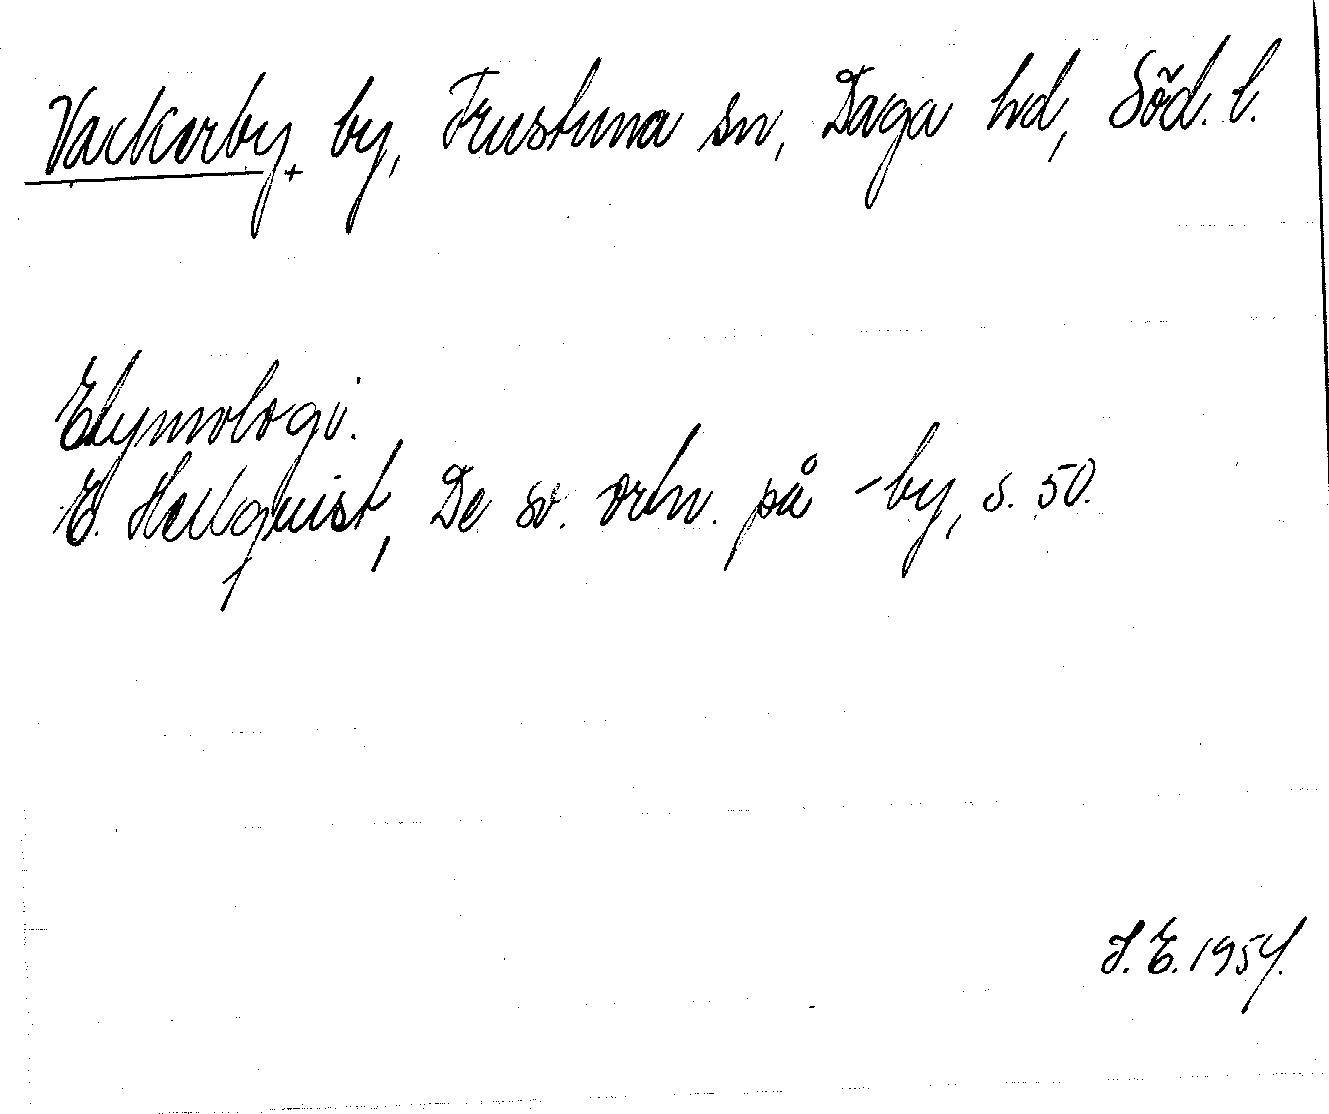 Vackerby, by, Frustuna sn, Daga hd, Söd. l.
Etymologi.
E. Hellquist, De sv. ortn. på -by, s. 50.
S. E. 1954.